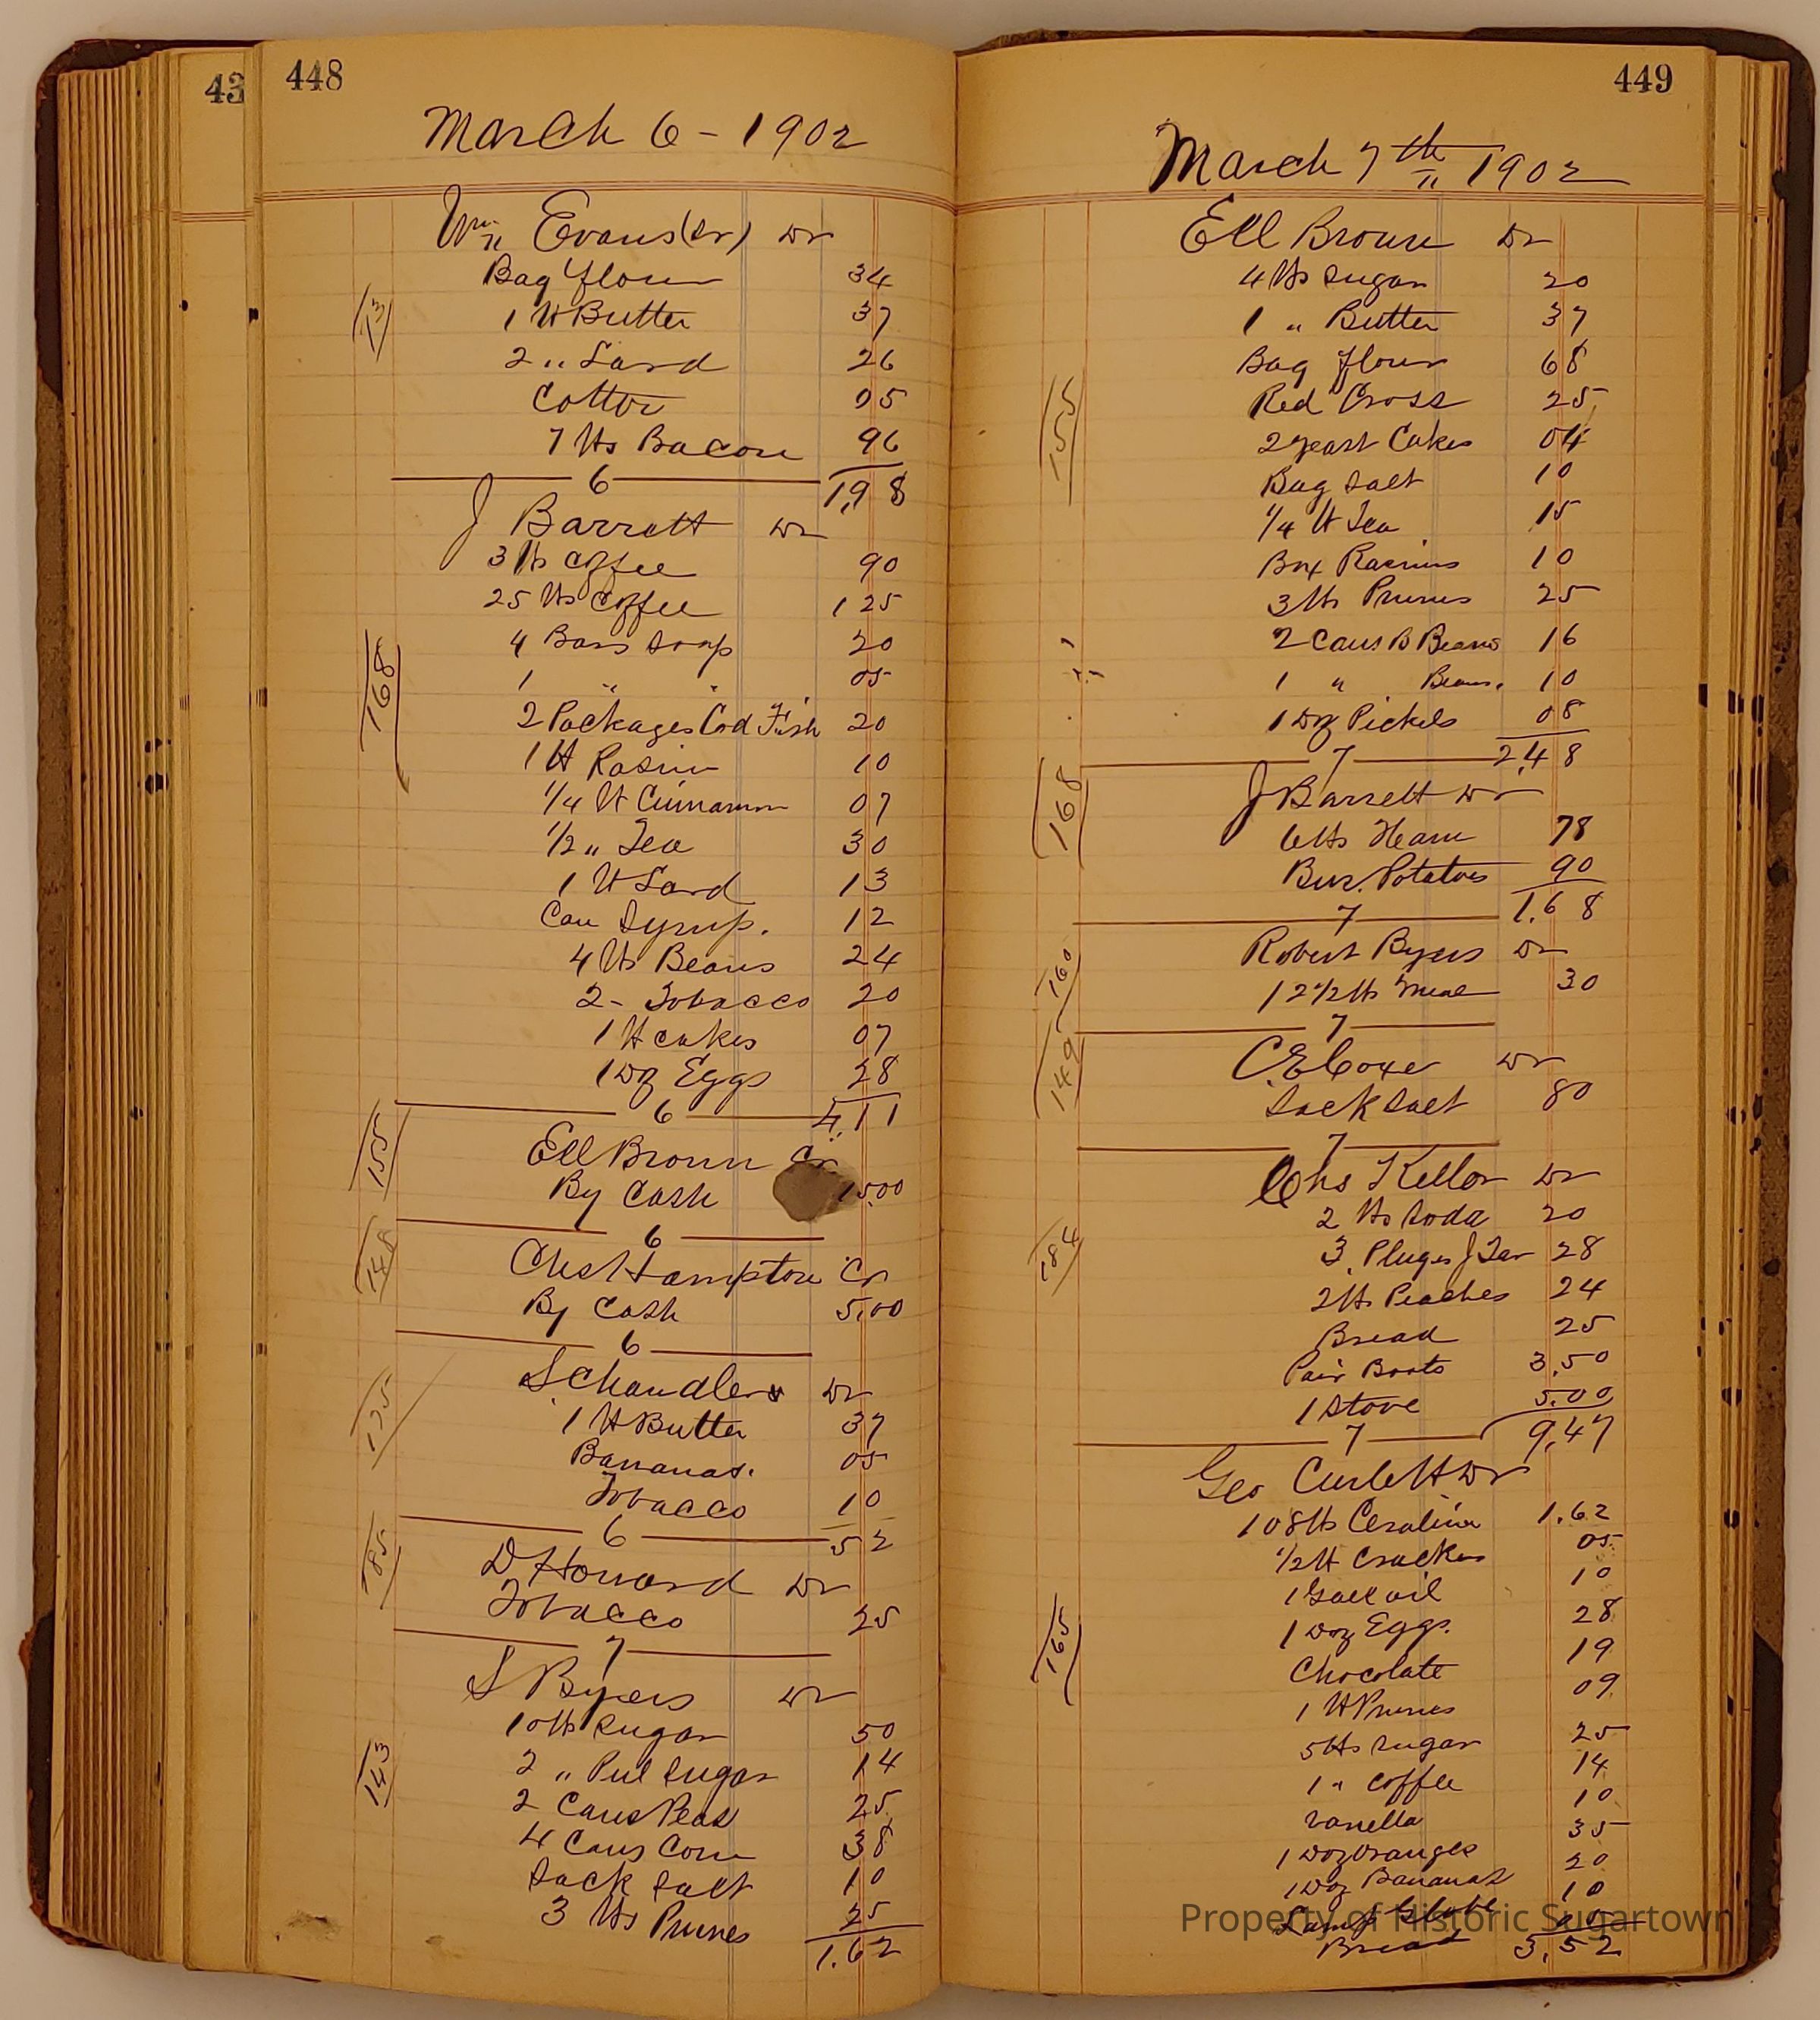 43
448
March 6 - 1902
Wm Evans (Sr) Dr
Bag flour 34
1 lb Butter 37
2 " Lard 26
Cotton 05
7 lbs Bacon 96
6 1.98
J Barrett Dr
3 lbs Coffee 90
25 lbs Coffee 1 25
4 Bars Soap 20
1 " " 05
2 Packages Cod Fish 20
1 lb Rasin 10
1/4 lb Cinnamon 07
1/2 " Tea 30
1 lb Lard 13
Can Syrup. 12
4 lbs Beans 24
2 - Tobacco 20
1 lb Cakes 07
1 Doz Eggs 28
6 4.11
Ell Brown Cr
By Cash 15.00
6
Ches Hampton Cr
By Cash 5.00
6
S Chandler Dr
1 lb Butter 37
Bananas. 05
Tobacco 10
6 52
D Howard Dr
Tobacco 25
7
S Byers Dr
10 lbs Sugar 50
2 " Pul Sugar 14
2 Cans Peas 25
4 Cans Corn 38
Sack Salt 10
3 lbs Prunes 25
1.62
13
168
155
148
125
185
143
449
March 7th 1902
Ell Brown Dr
4 lbs Sugar 20
1 " Butter 37
Bag flour 68
Red Cross 25
2 Yeast Cakes 04
Bag Salt 10
1/4 lb Tea 15
Box Rasins 10
3 lbs Prunes 25
2 Cans B Beans 16
1 " Beans. 10
1 Doz Pickels 08
7 2.48
J Barrett Dr
6 lbs Ham 78
Bus. Potatoes 90
7 1.68
Robert Byers Dr
12 1/2 lbs Meal 30
7
C.E. Coxe Dr
Sack Salt 80
7
Chs Kellor Dr
2 lbs Soda 20
3 Pluges J Tar 28
2 lbs Peaches 24
Bread 25
Pair Boots 3.50
1 Stove 5.00
7 9.47
Geo Curlett Dr
108 lbs Ceralina 1.62
1/2 lb Crackers 05
1 Gall oil 10
1 Doz Eggs. 28
Chocolate 19
1 lb Prunes 09
5 lbs Sugar 25
1 " Coffee 14
Vanella 10
1 Doz Oranges 35
1 Doz Bananas 20
Lamp Globe 10
Bread 05
3.52
155
168
160
149
184
165
Property of Historic Sugartown